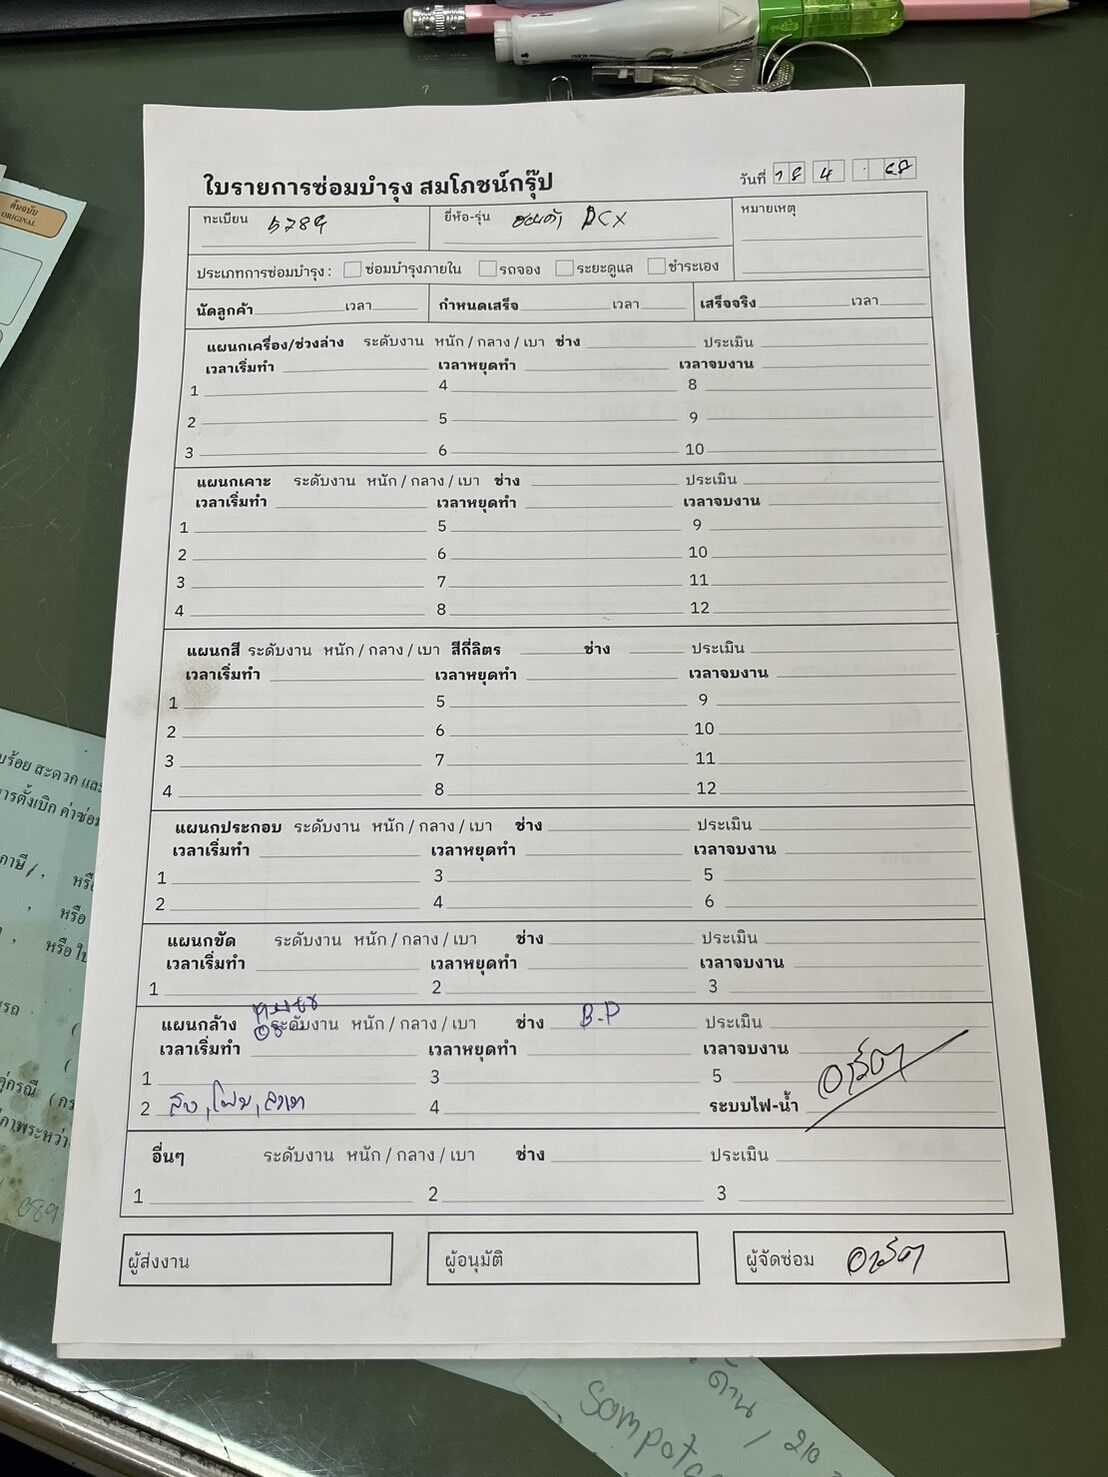 ต้นฉบับ
ORIGINAL
ใบรายการซ่อมบำรุง สมโภชน์กรุ๊ป
วันที่ 18 4 68
ทะเบียน 5789
ยี่ห้อ-รุ่น ฮอนด้า PCX
หมายเหตุ
ประเภทการซ่อมบำรุง : ซ่อมบำรุงภายใน รถจอง ระยะดูแล ชำระเอง
นัดลูกค้า เวลา กำหนดเสร็จ เวลา เสร็จจริง เวลา
แผนกเครื่อง/ช่วงล่าง ระดับงาน หนัก / กลาง / เบา ช่าง ประเมิน
เวลาเริ่มทำ เวลาหยุดทำ เวลาจบงาน
1 4 8
2 5 9
3 6 10
แผนกเคาะ ระดับงาน หนัก / กลาง / เบา ช่าง ประเมิน
เวลาเริ่มทำ เวลาหยุดทำ เวลาจบงาน
1 5 9
2 6 10
3 7 11
4 8 12
แผนกสี ระดับงาน หนัก / กลาง / เบา สีกี่ลิตร ช่าง ประเมิน
เวลาเริ่มทำ เวลาหยุดทำ เวลาจบงาน
1 5 9
2 6 10
3 7 11
4 8 12
แผนกประกอบ ระดับงาน หนัก / กลาง / เบา ช่าง ประเมิน
เวลาเริ่มทำ เวลาหยุดทำ เวลาจบงาน
1 3 5
2 4 6
แผนกขัด ระดับงาน หนัก / กลาง / เบา ช่าง ประเมิน
เวลาเริ่มทำ เวลาหยุดทำ เวลาจบงาน
1 2 3
แผนกล้าง ระดับงาน หนัก / กลาง / เบา ช่าง B-P ประเมิน
เวลาเริ่มทำ เวลาหยุดทำ เวลาจบงาน
1 3 5
2 4 ระบบไฟ-น้ำ
อื่นๆ ระดับงาน หนัก / กลาง / เบา ช่าง ประเมิน
1 2 3
ผู้ส่งงาน ผู้อนุมัติ ผู้จัดซ่อม
บร้อย สะดวก และ
การตั้งเบิก ค่าซ่อม
ภาษี
หรือ
089
ด้าน / 210